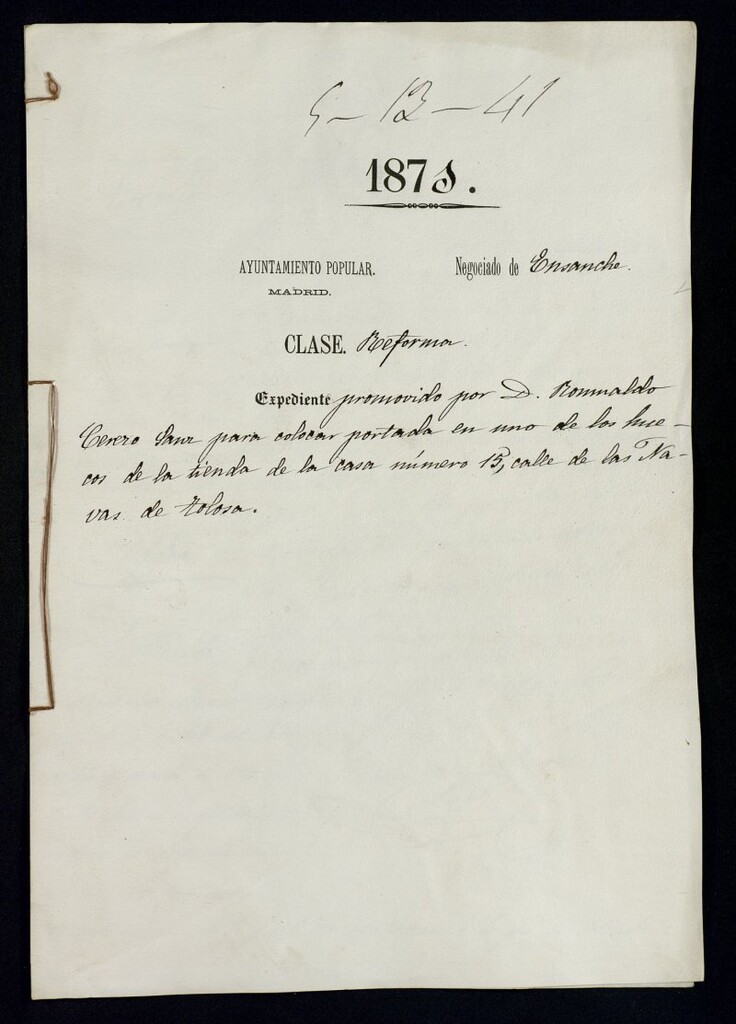 5-13-41
1875.
AYUNTAMIENTO POPULAR. Negociado de Ensanche.
MADRID.
CLASE. Reforma.
Expediente promovido por D. Romualdo
Cerezo Sanz para colocar portada en uno de los hue-
cos de la tienda de la casa número 15, calle de las Na-
vas de Tolosa.